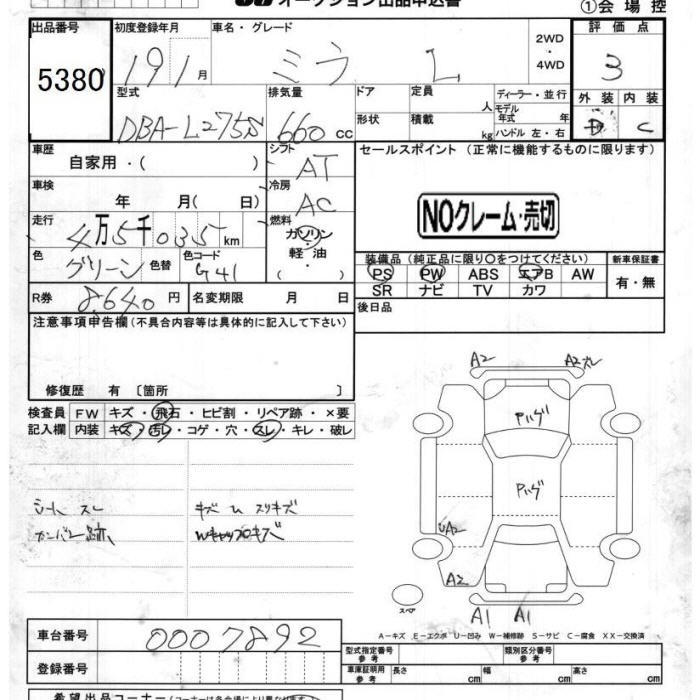 オークション出品申込書
①会場控
出品番号 初度登録年月 車名・グレード 評価点
5380 19 1月 ミラ L 2WD・4WD 3
型式 排気量 ドア 定員 人 ディーラー・並行 外装 内装
DBA-L275S 660cc 形状 積載 kg モデル年式 年 ハンドル 左・右 D C
車歴 シフト セールスポイント(正常に機能するものに限ります)
自家用・( ) AT
車検 冷房
年 月( 日) AC
NOクレーム・売切
走行 燃料
4万5千035km ガソリン・軽油・( )
色 色替 色コード 装備品(純正品に限り○をつけてください) 新車保証書
グリーン G41 PS PW ABS エアB AW 有・無
SR ナビ TV カワ
R券 8,640円 名変期限 月 日 後日品
注意事項申告欄(不具合内容等は具体的に記入して下さい)
修復歴 有〔箇所 〕
検査員 FW キズ・飛石・ヒビ割・リペア跡・×要
記入欄 内装 キズ・汚レ・コゲ・穴・スレ・キレ・破レ
シート スレ
カンバン跡
キズ U スリキズ
WキャップDキズ
A2
A2
Pハゲ
Pハゲ
UA2
A2
A1 A1
スペア
A-キズ E-エクボ U-凹み W-補修跡 S-サビ C-腐食 XX-交換済
車台番号 0007892
型式指定番号 参考 類別区分番号 参考
登録番号 車庫証明用 参考 長さ cm 幅 cm 高さ cm
希望出品コーナー